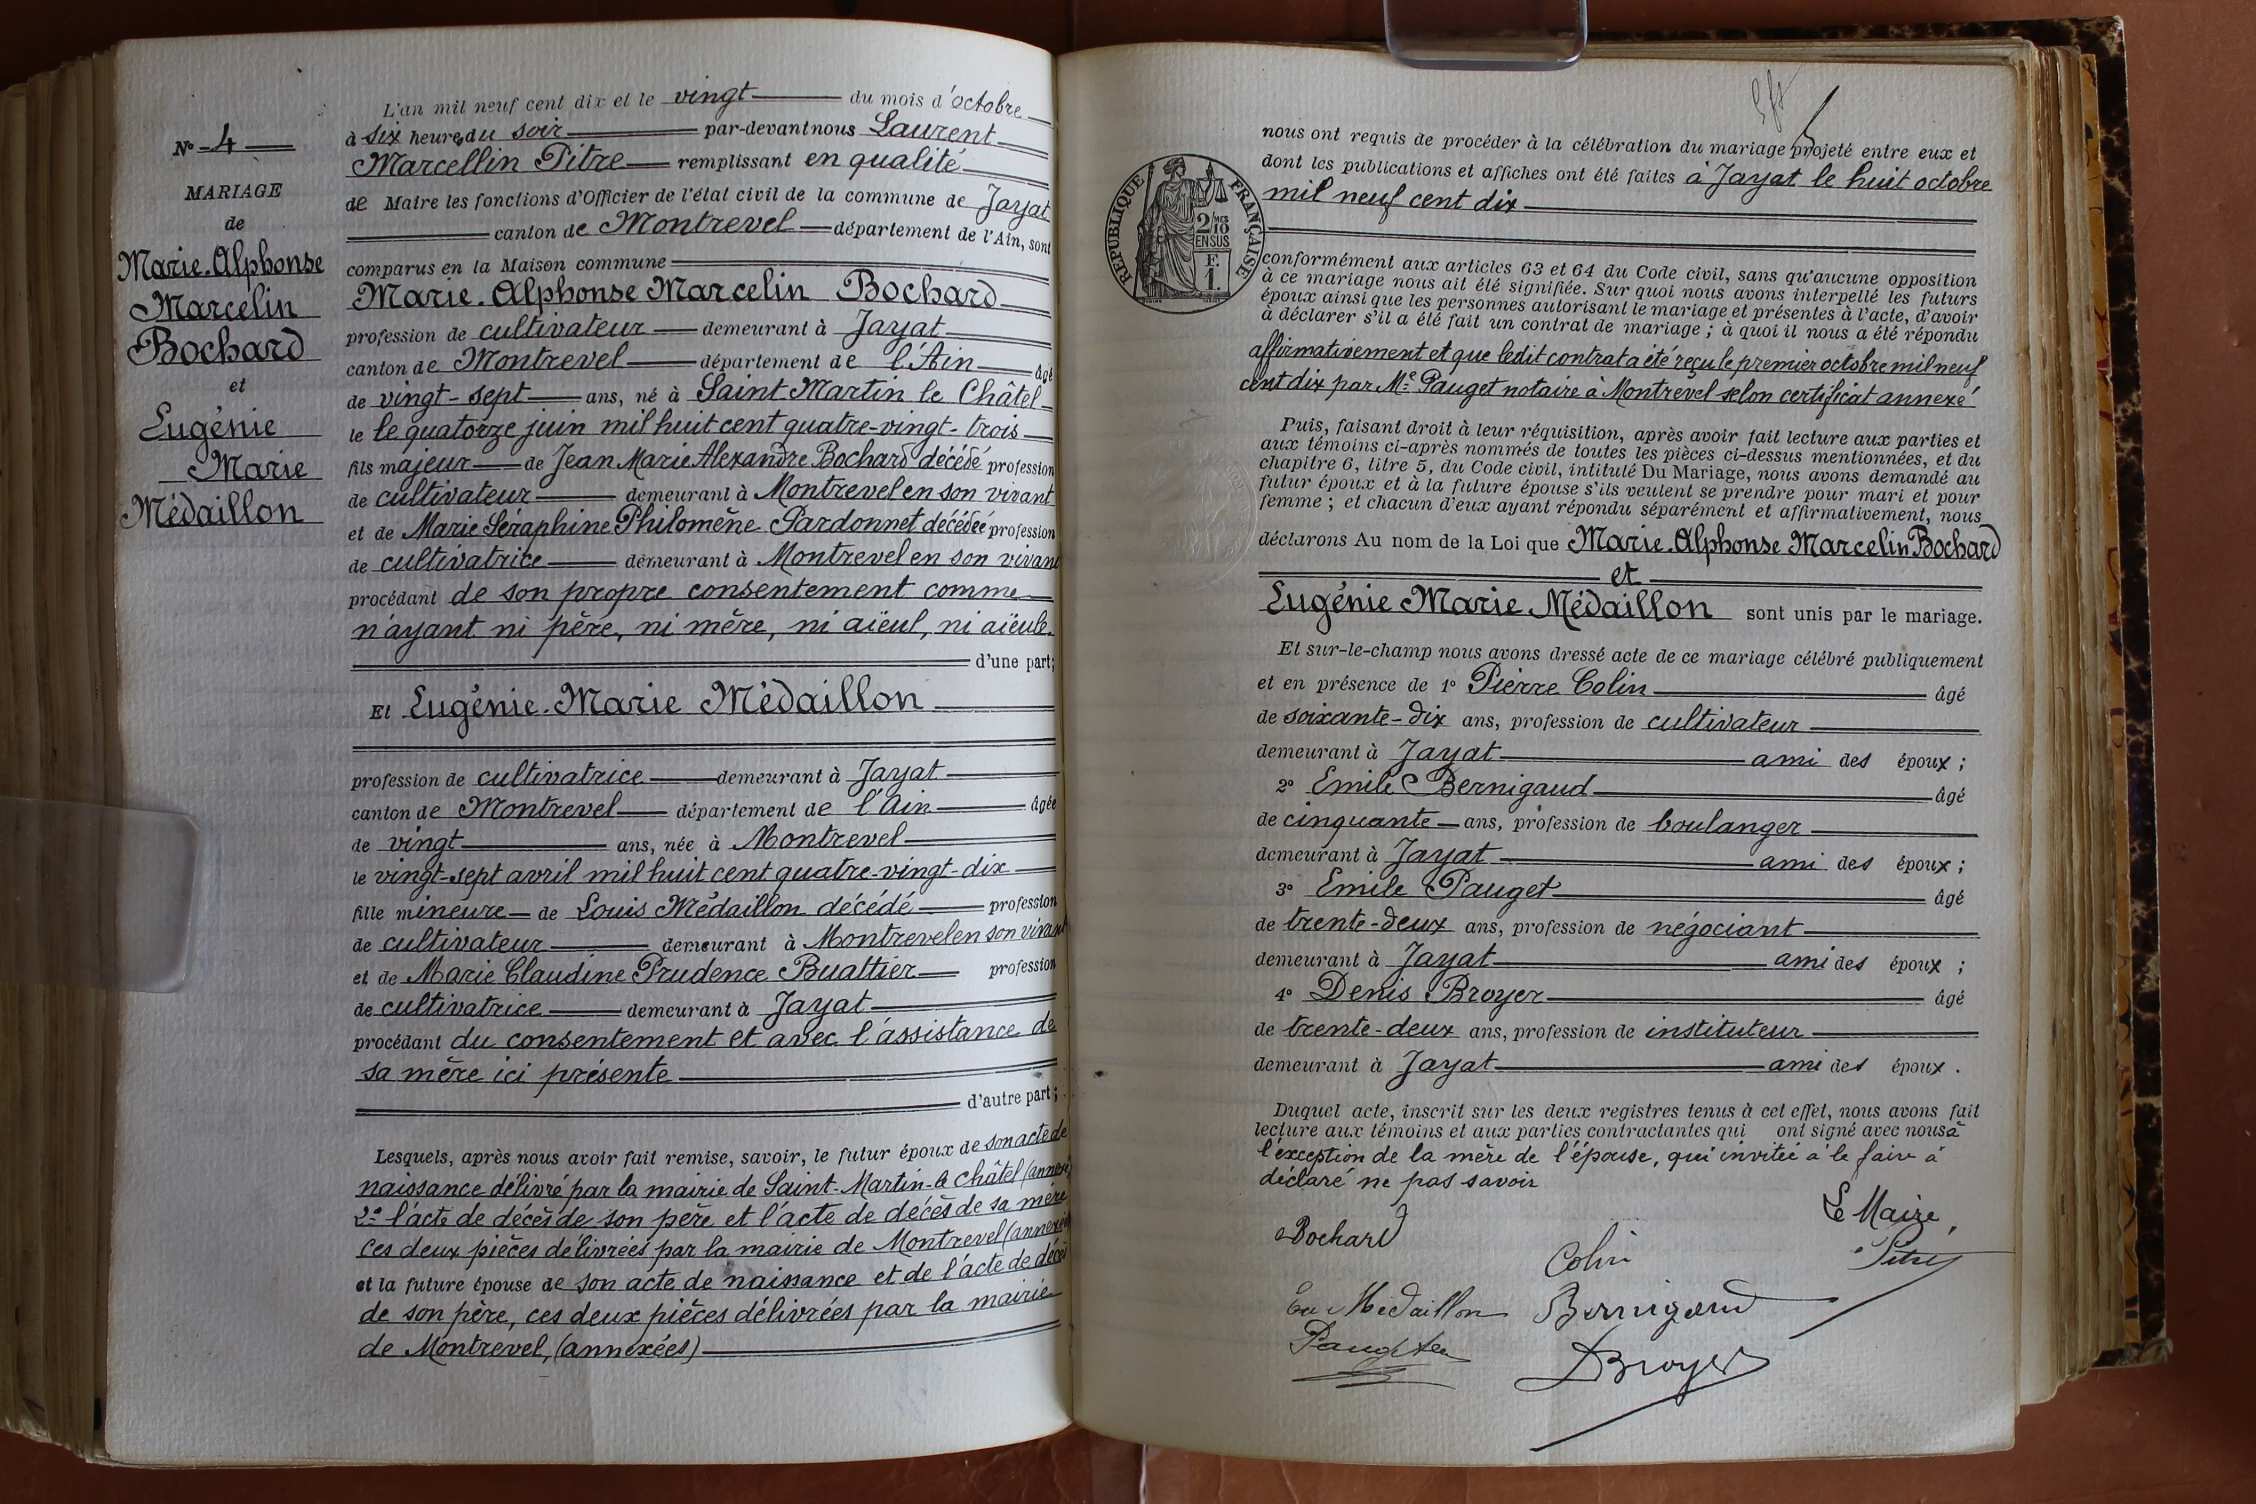 N° 4
MARIAGE
de
Marie-Alphonse
Marcelin
Bochard
et
Eugénie
Marie
Médaillon
L'an mil neuf cent dix et le vingt du mois d'octobre
à six heures du soir par-devant nous Laurent
Marcellin Pitre remplissant en qualité
de Maire les fonctions d'Officier de l'état civil de la commune de Jayat
canton de Montrevel département de l'Ain, sont
comparus en la Maison commune
Marie-Alphonse Marcelin Bochard
profession de cultivateur demeurant à Jayat
canton de Montrevel département de l'Ain âgé
de vingt-sept ans, né à Saint-Martin le Châtel
le le quatorze juin mil huit cent quatre-vingt-trois
fils majeur de Jean Marie Alexandre Bochard décédé profession
de cultivateur demeurant à Montrevel en son vivant
et de Marie Séraphine Philomène Pardonnet décédée profession
de cultivatrice demeurant à Montrevel en son vivant
procédant de son propre consentement comme
n'ayant ni père, ni mère, ni aïeul, ni aïeule.
d'une part;
Et Eugénie-Marie Médaillon
profession de cultivatrice demeurant à Jayat
canton de Montrevel département de l'Ain âgée
de vingt ans, née à Montrevel
le vingt-sept avril mil huit cent quatre-vingt-dix
fille mineure de Louis Médaillon décédé profession
de cultivateur demeurant à Montrevel en son vivant
et de Marie Claudine Prudence Buattier profession
de cultivatrice demeurant à Jayat
procédant du consentement et avec l'assistance de
sa mère ici présente
d'autre part;
Lesquels, après nous avoir fait remise, savoir, le futur époux de son acte de
naissance délivré par la mairie de Saint-Martin-le Châtel (annexé)
2° l'acte de décès de son père et l'acte de décès de sa mère
ces deux pièces délivrées par la mairie de Montrevel (annexées)
et la future épouse de son acte de naissance et de l'acte de décès
de son père, ces deux pièces délivrées par la mairie
de Montrevel, (annexées)
RÉPUBLIQUE FRANÇAISE
2/10
EN SUS
F.
1.
nous ont requis de procéder à la célébration du mariage projeté entre eux et
dont les publications et affiches ont été faites à Jayat le huit octobre
mil neuf cent dix
conformément aux articles 63 et 64 du Code civil, sans qu'aucune opposition
à ce mariage nous ait été signifiée. Sur quoi nous avons interpellé les futurs
époux ainsi que les personnes autorisant le mariage et présentes à l'acte, d'avoir
à déclarer s'il a été fait un contrat de mariage ; à quoi il nous a été répondu
affirmativement et que ledit contrat a été reçu le premier octobre mil neuf
cent dix par Me Pauget notaire à Montrevel selon certificat annexé
Puis, faisant droit à leur réquisition, après avoir fait lecture aux parties et
aux témoins ci-après nommés de toutes les pièces ci-dessus mentionnées, et du
chapitre 6, titre 5, du Code civil, intitulé Du Mariage, nous avons demandé au
futur époux et à la future épouse s'ils veulent se prendre pour mari et pour
femme ; et chacun d'eux ayant répondu séparément et affirmativement, nous
déclarons Au nom de la Loi que Marie-Alphonse Marcelin Bochard
et
Eugénie Marie Médaillon sont unis par le mariage.
Et sur-le-champ nous avons dressé acte de ce mariage célébré publiquement
et en présence de 1° Pierre Colin âgé
de soixante-dix ans, profession de cultivateur
demeurant à Jayat ami des époux ;
2° Emile Bernigaud âgé
de cinquante ans, profession de boulanger
demeurant à Jayat ami des époux ;
3° Emile Pauget âgé
de trente-deux ans, profession de négociant
demeurant à Jayat ami des époux ;
4° Denis Broyer âgé
de trente-deux ans, profession de instituteur
demeurant à Jayat ami des époux .
Duquel acte, inscrit sur les deux registres tenus à cet effet, nous avons fait
lecture aux témoins et aux parties contractantes qui ont signé avec nous à
l'exception de la mère de l'épouse, qui invitée à le faire a
déclaré ne pas savoir
Le Maire,
Bochard
Colin
Pitre
Eu Médaillon
Bernigaud
Pauget
Broyer